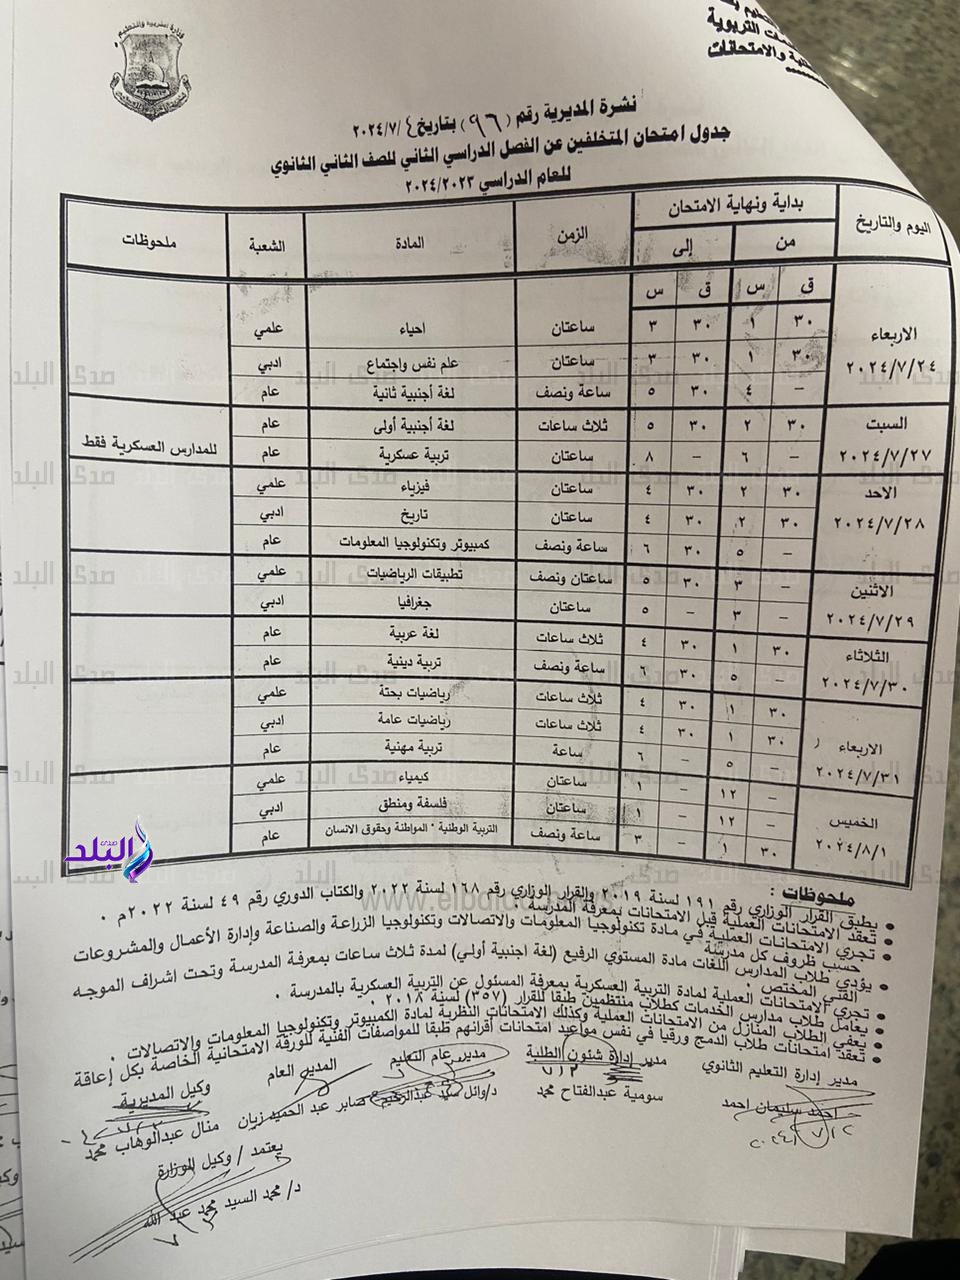 وزارة التربية والتعليم
والامتحانات
نشرة المديرية رقم (٩٦) بتاريخ ٤/٧/٢٠٢٤
جدول امتحان المتخلفين عن الفصل الدراسي الثاني للصف الثاني الثانوي
للعام الدراسي ٢٠٢٤/٢٠٢٣
اليوم والتاريخ بداية ونهاية الامتحان الزمن المادة الشعبة ملحوظات
من إلى
ق س ق س
الاربعاء ٢٠٢٤/٧/٢٤
٣٠ ١ ٣٠ ٣ ساعتان احياء علمي
٣٠ ١ ٣٠ ٣ ساعتان علم نفس واجتماع ادبي
– ٤ ٣٠ ٥ ساعة ونصف لغة أجنبية ثانية عام
السبت ٢٠٢٤/٧/٢٧
٣٠ ٢ ٣٠ ٥ ثلاث ساعات لغة أجنبية أولى عام
– ٦ – ٨ ساعتان تربية عسكرية عام للمدارس العسكرية فقط
الاحد ٢٠٢٤/٧/٢٨
٣٠ ٢ ٣٠ ٤ ساعتان فيزياء علمي
٣٠ ٢ ٣٠ ٤ ساعتان تاريخ ادبي
– ٥ ٣٠ ٦ ساعة ونصف كمبيوتر وتكنولوجيا المعلومات عام
الاثنين ٢٠٢٤/٧/٢٩
– ٣ ٣٠ ٥ ساعتان ونصف تطبيقات الرياضيات علمي
– ٣ – ٥ ساعتان جغرافيا ادبي
الثلاثاء ٢٠٢٤/٧/٣٠
٣٠ ١ ٣٠ ٤ ثلاث ساعات لغة عربية عام
– ٥ ٣٠ ٦ ساعة ونصف تربية دينية عام
الاربعاء ٢٠٢٤/٧/٣١
٣٠ ١ ٣٠ ٤ ثلاث ساعات رياضيات بحتة علمي
٣٠ ١ ٣٠ ٤ ثلاث ساعات رياضيات عامة ادبي
– ٥ – ٦ ساعة تربية مهنية عام
الخميس ٢٠٢٤/٨/١
– ١٢ – ١ ساعتان كيمياء علمي
– ١٢ – ١ ساعتان فلسفة ومنطق ادبي
٣٠ ١ – ٣ ساعة ونصف التربية الوطنية • المواطنة وحقوق الانسان عام
صدى البلد
ملحوظات :
يطبق القرار الوزاري رقم ١٩١ لسنة ٢٠١٩ والقرار الوزاري رقم ١٦٨ لسنة ٢٠٢٢ والكتاب الدوري رقم ٤٩ لسنة ٢٠٢٢م .
تعقد الامتحانات العملية قبل الامتحانات بمعرفة المدرسة
تجري الامتحانات العملية في مادة تكنولوجيا المعلومات والاتصالات وتكنولوجيا الزراعة والصناعة وإدارة الأعمال والمشروعات
حسب ظروف كل مدرسة
يؤدي طلاب المدارس اللغات مادة المستوي الرفيع (لغة اجنبية أولي) لمدة ثلاث ساعات بمعرفة المدرسة وتحت اشراف الموجه
الفني المختص .
تجري الامتحانات العملية لمادة التربية العسكرية بمعرفة المسئول عن التربية العسكرية بالمدرسة .
يعامل طلاب مدارس الخدمات كطلاب منتظمين طبقا للقرار (٣٥٧) لسنة ٢٠١٨ .
يعفي الطلاب المنازل من الامتحانات العملية وكذلك الامتحانات النظرية لمادة الكمبيوتر وتكنولوجيا المعلومات والاتصالات .
تعقد امتحانات طلاب الدمج ورقيا في نفس مواعيد امتحانات أقرانهم طبقا للمواصفات الفنية للورقة الامتحانية الخاصة بكل إعاقة
www.elbalad.news
مدير إدارة التعليم الثانوي مدير إدارة شئون الطلبة مدير عام التعليم المدير العام وكيل المديرية
احمد سليمان احمد سومية عبدالفتاح محمد د/وائل سيد عبدالرحيم صابر عبد الحميد زيان منال عبدالوهاب محمد
يعتمد / وكيل الوزارة
د/ محمد السيد محمد عبد الله